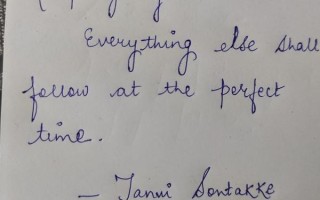 Everything else shall
follow at the perfect
time.
— Tanvi Sontakke